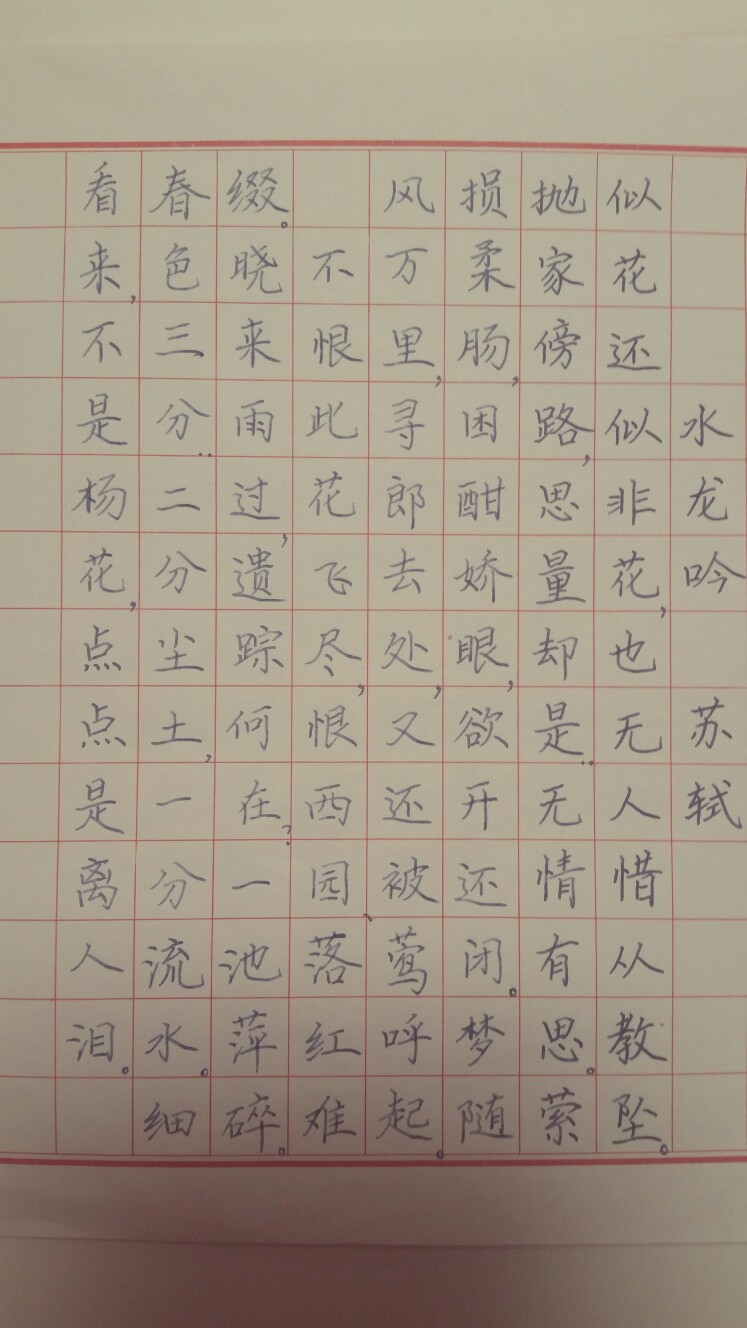 水龙吟 苏轼
似花还似非花,也无人惜从教坠。
抛家傍路,思量却是:无情有思。萦
损柔肠,困酣娇眼,欲开还闭。梦随
风万里,寻郎去处,又还被莺呼起。
不恨此花飞尽,恨西园、落红难
缀。晓来雨过,遗踪何在?一池萍碎。
春色三分:二分尘土,一分流水。细
看来,不是杨花,点点是离人泪。